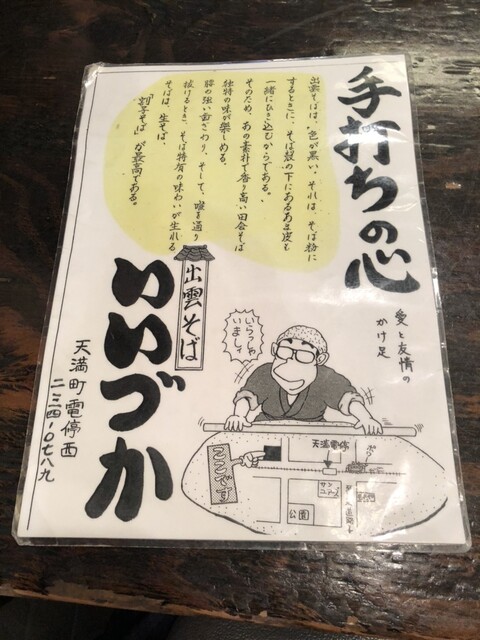 手打ちの心
出雲そばは、色が黒い。それは、そば粉に
するときに、そば殻の下にあるあま皮も
一緒にひき込むからである。
そのため、あの素朴で香り高い田舎そば
独特の味が楽しめる。
腰の強い歯ざわり、そして、喉を通り
抜けるとき、そば特有の味わいが生れる
そばは、生そば、
「割子そば」が最高である。
愛と友情の
かけ足
出雲そば
いいづか
天満町電停西
二三四-〇七八九
いらっしゃ
いましィ
天満電停
ここです
公園